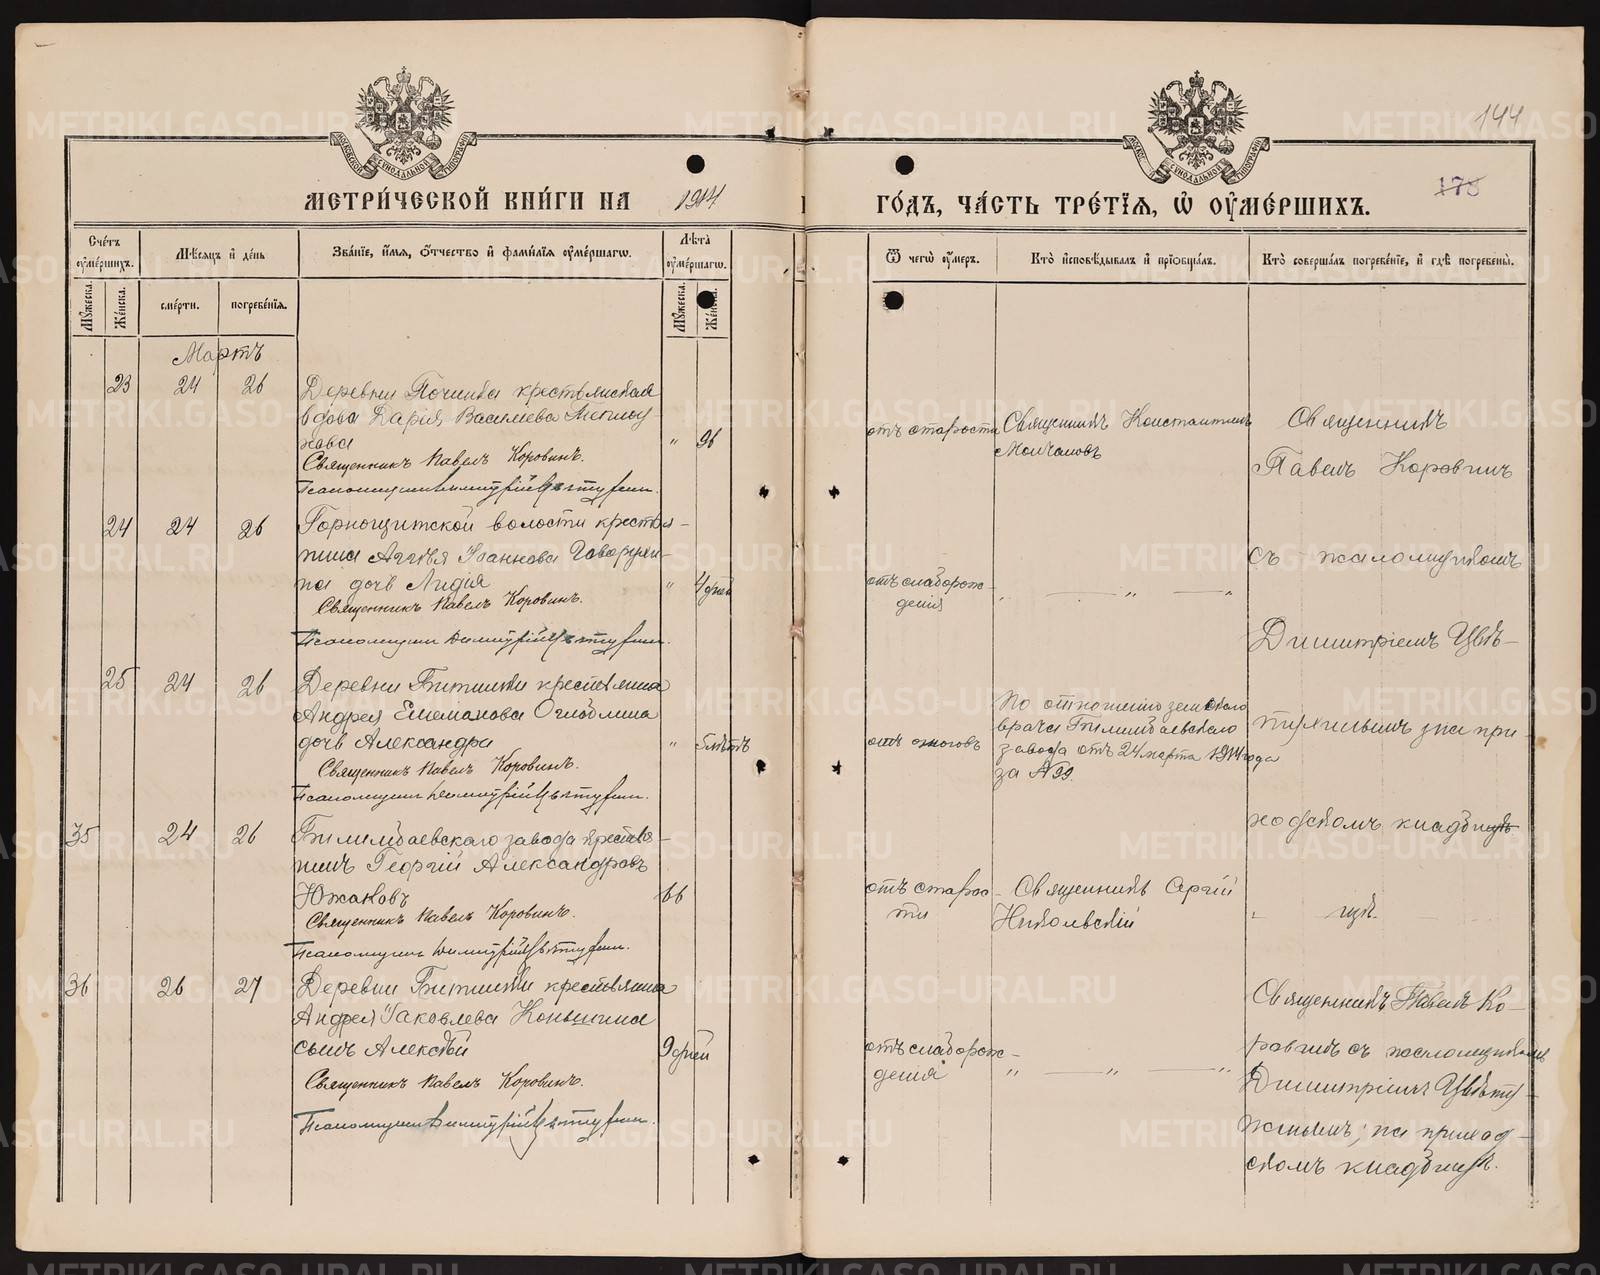 144
175
МЕТРИ́ЧЕСКОЙ КНИ́ГИ НА 1914 ГО́ДЪ, ЧА́СТЬ ТРЕ́ТЇЯ, Ѡ ОУМЕ́РШИХЪ.
Сче́тъ оуме́ршихъ.
Мꙋжеска.
Же́нска.
Мѣ́сяцъ и́ де́нь
сме́рти.
погребе́нїя.
Зва́нїе, и́мя, о́тчество и́ фами́лїя оуме́ршагѡ.
Лѣ́та оуме́ршагѡ.
Мꙋжеска.
Же́нска.
Ѿ чегѡ̀ оу́меръ.
Кто̀ и́сповѣ́дывалъ и́ прїобща́лъ.
Кто̀ соверша́лъ погребе́нїе, и́ гдѣ̀ погребены̀.
Мартъ
23 24 26 Деревни Починка крестьянская
вдова Дарія Васильева
" 96
Священникъ Павелъ Коровинъ.
Псаломщикъ Димитрій Цвѣтухин.
отъ старости
Священникъ Константинъ
Молчановъ
Священникъ
Павелъ Коровинъ
24 24 26 Горнощитской волости крестья-
нина Аггѣя Іоаннова Говорухи-
на дочь Лидія
" 4 дней
Священникъ Павелъ Коровинъ.
Псаломщикъ Димитрій Цвѣтухин.
отъ слаборож-
денія
" — " — "
съ псаломщикомъ
Димитріемъ Цвѣ-
25 24 26 Деревни Битимки крестьянина
Андрея
дочь Александра
" 5 лѣтъ
Священникъ Павелъ Коровинъ.
Псаломщикъ Димитрій Цвѣтухин.
отъ ожоговъ
По отношенію земскаго
врача Билимбаевскаго
завода отъ 24 марта 1914 года
за № 99.
тухинымъ на при-
ходскомъ кладби-
35 24 26 Билимбаевскаго завода крестья-
нинъ Георгій Александровъ
Южаковъ
66
Священникъ Павелъ Коровинъ.
Псаломщикъ Димитрій Цвѣтухин.
отъ старос-
ти
Священникъ Сергій
Никольскій
щѣ.
36 26 27 Деревни Битимки крестьянина
Андрея Іаковлева Коньшина
сынъ Алексѣй
9 дней
Священникъ Павелъ Коровинъ.
Псаломщикъ Димитрій Цвѣтухин.
отъ слаборож-
денія
" — " — "
Священникъ Павелъ Ко-
ровинъ съ псаломщикомъ
Димитріемъ Цвѣту-
хинымъ, на приход-
скомъ кладбищѣ.
METRIKI.GASO-URAL.RU